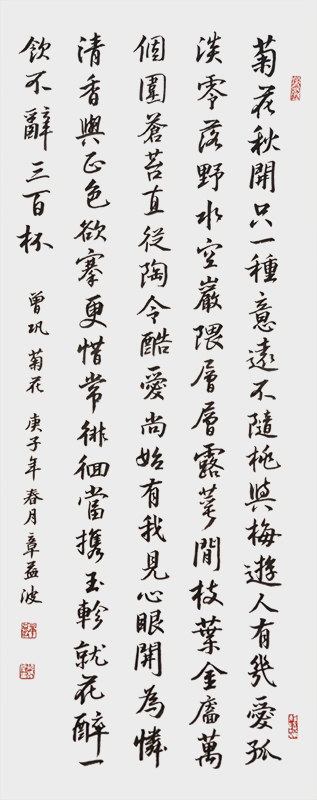 菊花秋開只一種意遠不隨桃與梅遊人有幾愛孤
淡零落野水空巖隈層層露萼閒枝葉金靨萬
個圍蒼苔直從陶令酷愛尚始有我見心眼開為憐
清香與正色欲搴更惜常徘徊當攜玉軫就花醉一
飲不辭三百杯
曾巩菊花庚子年春月章益波